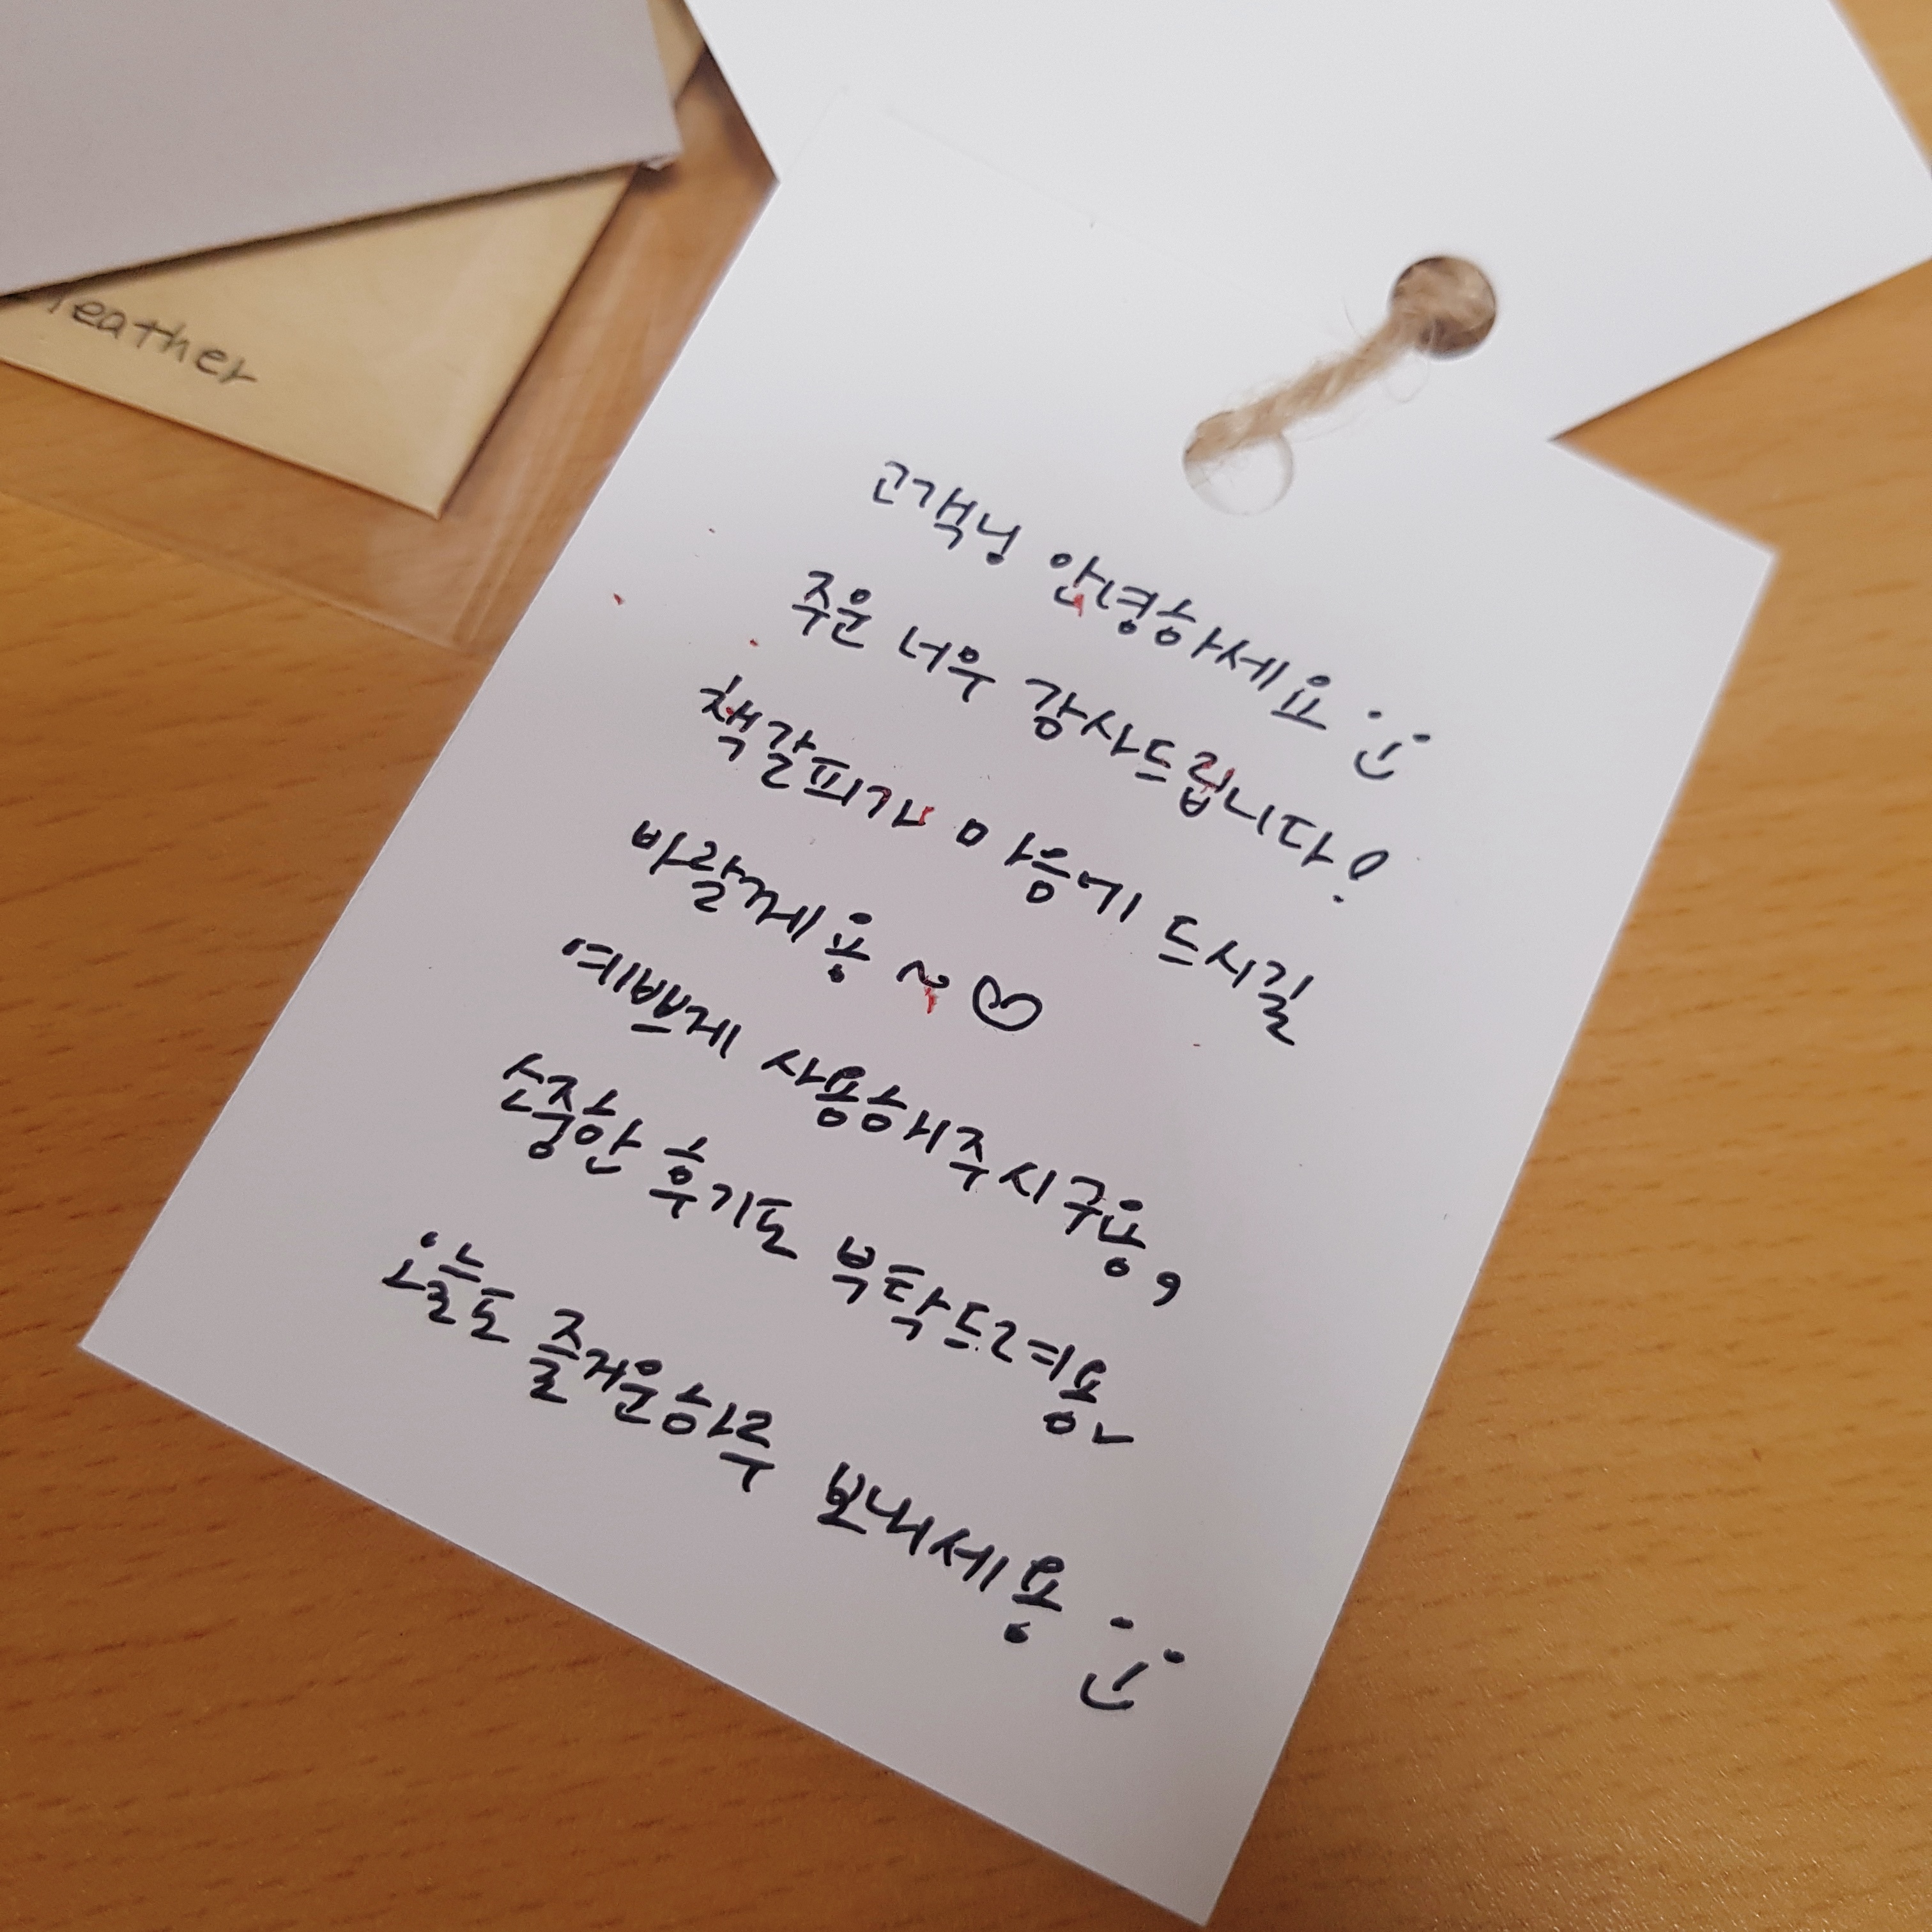 leather
고객님 안녕하세요
주문 너무 감사드립니다!
책갈피가 마음에 드시길
바랄께용 ~ ♡
예쁘게 사용해주시구용,
소중한 후기도 부탁드려용~
오늘도 즐거운하루 보내세용